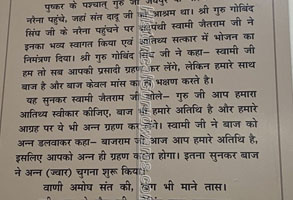 पुष्कर के पश्चात् गुरु जी जयपुर के
नरैना पहुंचे, जहां संत दादू जी का आश्रम था। श्री गुरु गोबिंद
सिंघ जी के नरैना पहुंचने पर दादूपंथी स्वामी जैतराम जी ने
इनका भव्य स्वागत किया एवं आतिथ्य सत्कार में भोजन का
निमंत्रण दिया। श्री गुरु गोबिंद सिंघ जी ने कहा– स्वामी जी
हम तो सब आपकी प्रसादी ग्रहण कर लेंगे, लेकिन हमारे साथ
बाज है और बाज केवल मांस का ही भक्षण करते है।
यह सुनकर स्वामी जैतराम जी बोले– गुरु जी आप हमारा
आतिथ्य स्वीकार कीजिए, बाज भी हमारे अतिथि है और हमारे
आग्रह पर ये भी अन्न ग्रहण करेंगे। स्वामी जी ने बाज को
अन्न डलवाकर कहा– बाजराम जी आज आप हमारे अतिथि है,
इसलिए आपको अन्न ही ग्रहण करना होगा। इतना सुनकर बाज
ने अन्न (ज्वार) चुगना शुरू किया।
वाणी अमोघ संत की, खग भी माने तास।